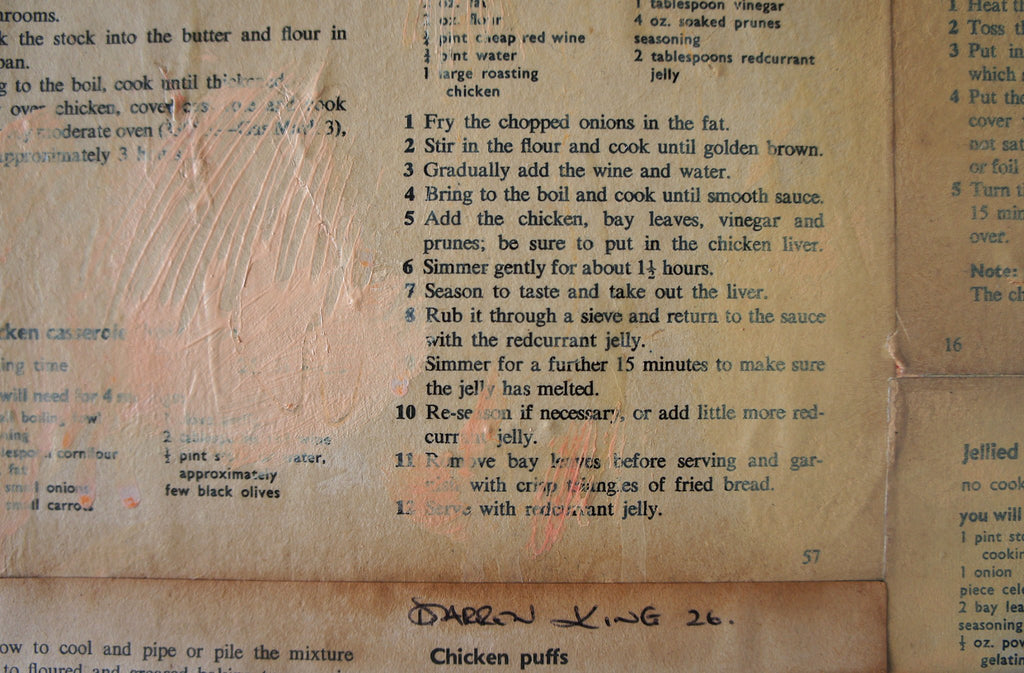 rooms.
k the stock into the butter and flour in
pan.
g to the boil, cook until thickened.
over chicken, cover casserole and cook
moderate oven
approximately 3 hours
chicken casserole
ing time
will need for 4
boiling fowl
cornflour
fat
small onion
small carrot
2
½ pint water,
approximately
few black olives
oz. fat
oz. flour
¼ pint cheap red wine
pint water
1 large roasting
chicken
1 tablespoon vinegar
4 oz. soaked prunes
seasoning
2 tablespoons redcurrant
jelly
1 Fry the chopped onions in the fat.
2 Stir in the flour and cook until golden brown.
3 Gradually add the wine and water.
4 Bring to the boil and cook until smooth sauce.
5 Add the chicken, bay leaves, vinegar and
prunes; be sure to put in the chicken liver.
6 Simmer gently for about 1½ hours.
7 Season to taste and take out the liver.
8 Rub it through a sieve and return to the sauce
with the redcurrant jelly.
Simmer for a further 15 minutes to make sure
the jelly has melted.
10 Re-season if necessary, or add little more red-
currant jelly.
11 Remove bay leaves before serving and gar-
nish with crisp triangles of fried bread.
12 Serve with redcurrant jelly.
57
DARREN KING 26.
ow to cool and pipe or pile the mixture
to floured and greased
Chicken puffs
1 Heat th
2 Toss th
3 Put in
which
4 Put the
cover
not sat
or foil
5 Turn t
15 min
over.
Note:
The ch
16
Jellied
no cook
you will
1 pint sto
cookin
1 onion
piece cele
2 bay lea
seasoning
½ oz. pow
gelatin